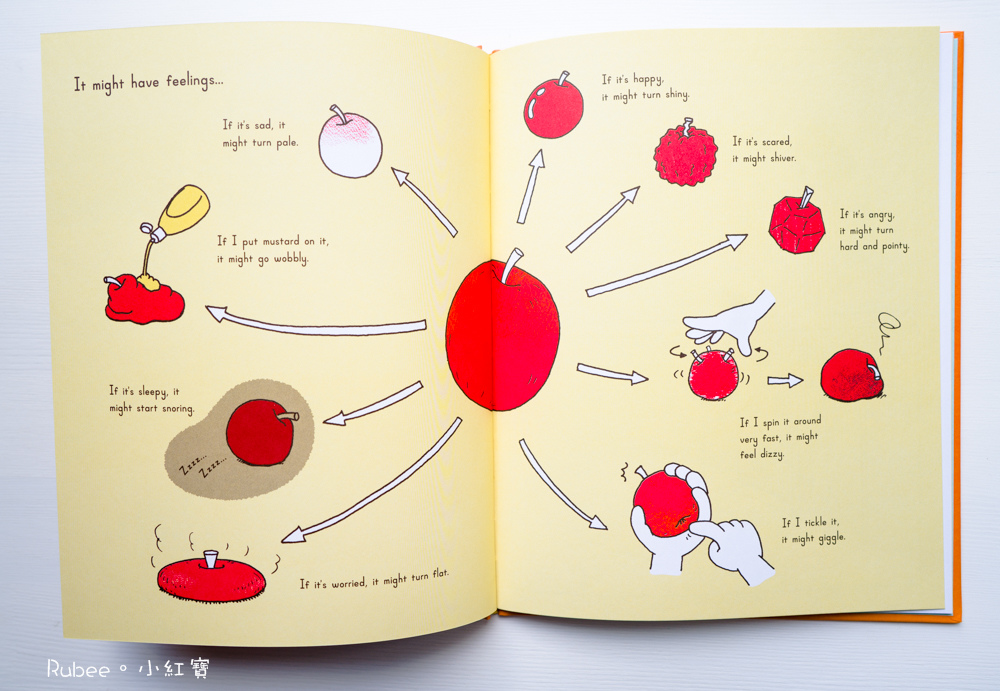 It might have feelings...
If it's sad, it
might turn pale.
If I put mustard on it,
it might go wobbly.
If it's sleepy, it
might start snoring.
Zzzz...
Zzzz...
If it's worried, it might turn flat.
If it's happy,
it might turn shiny.
If it's scared,
it might shiver.
If it's angry,
it might turn
hard and pointy.
If I spin it around
very fast, it might
feel dizzy.
If I tickle it,
it might giggle.
Rubee。小紅寶